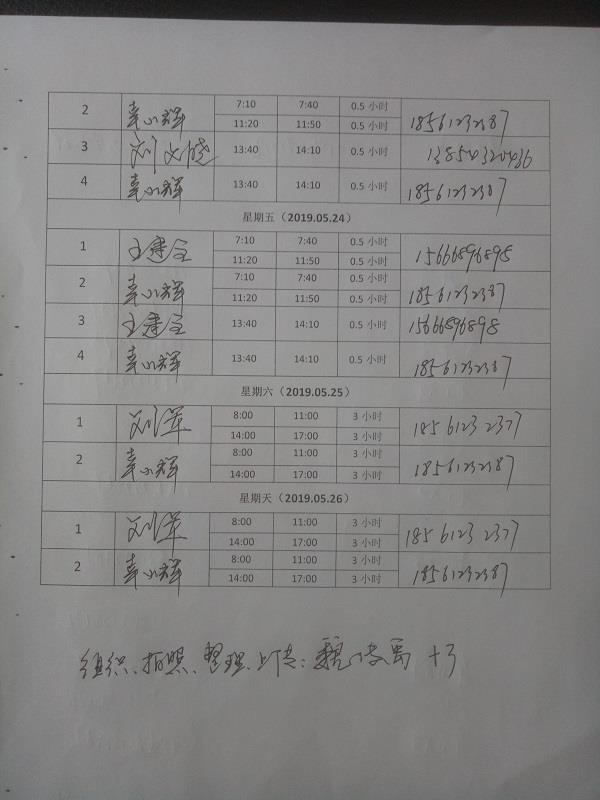 2 7:10 7:40 0.5 小时 18561232387
11:20 11:50 0.5 小时
3 刘文晓 13:40 14:10 0.5 小时 13854320436
4 13:40 14:10 0.5 小时 18561232387
星期五（2019.05.24）
1 王建军 7:10 7:40 0.5 小时 15666896898
11:20 11:50 0.5 小时
2 7:10 7:40 0.5 小时 18561232387
11:20 11:50 0.5 小时
3 13:40 14:10 0.5 小时 15666896898
4 13:40 14:10 0.5 小时 18561232387
星期六（2019.05.25）
1 刘军 8:00 11:00 3 小时 18561232377
14:00 17:00 3 小时
2 8:00 11:00 3 小时 18561232387
14:00 17:00 3 小时
星期天（2019.05.26）
1 刘军 8:00 11:00 3 小时 18561232377
14:00 17:00 3 小时
2 8:00 11:00 3 小时 18561232387
14:00 17:00 3 小时
组织、拍照、整理、上传：魏 +3